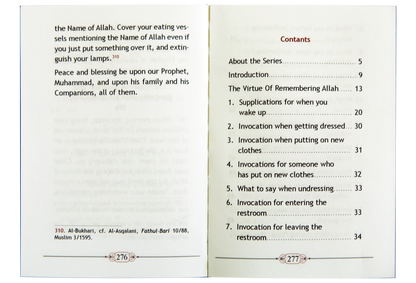 the Name of Allah. Cover your eating ves-
sels mentioning the Name of Allah even if
you just put something over it, and extin-
guish your lamps.310
Peace and blessing be upon our Prophet,
Muhammad, and upon his family and his
Companions, all of them.
310. Al-Bukhari, cf. Al-Asqalani, Fathul-Bari 10/88,
Muslim 3/1595.
276
Contents
About the Series 5
Introduction 9
The Virtue Of Remembering Allah 13
1. Supplications for when you
wake up 20
2. Invocation when getting dressed 30
3. Invocation when putting on new
clothes 31
4. Invocations for someone who
has put on new clothes 32
5. What to say when undressing 33
6. Invocation for entering the
restroom 33
7. Invocation for leaving the
restroom 34
277